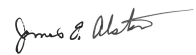 James E. Alston